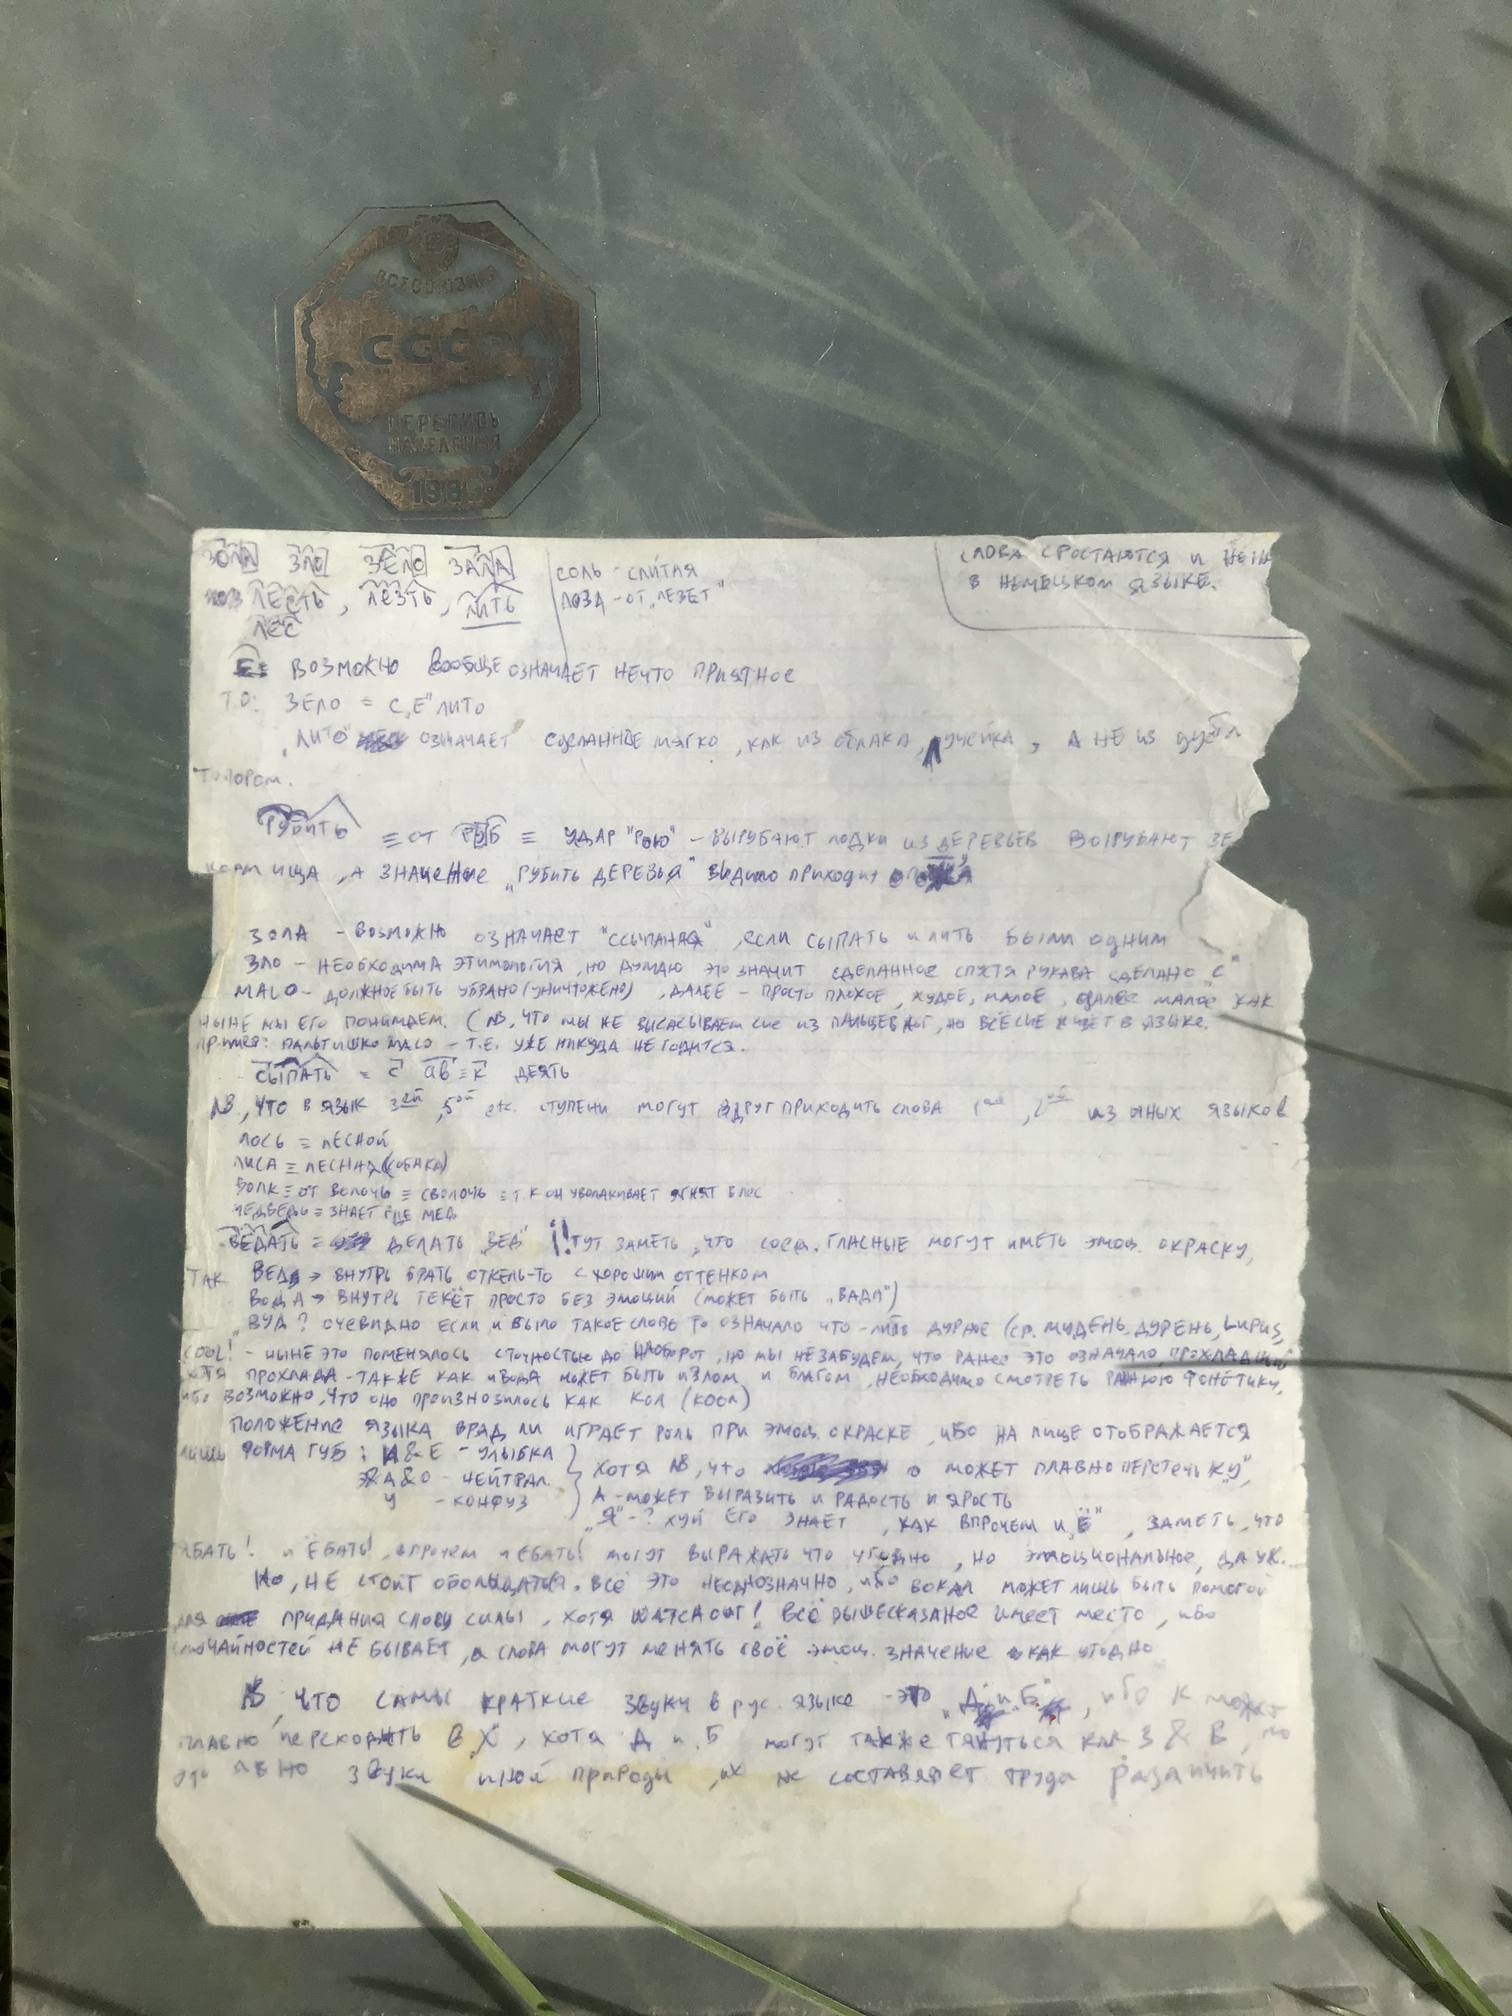 ВСЕСОЮЗНАЯ
СССР
ПЕРЕПИСЬ
НАСЕЛЕНИЯ
198
ЗОЛА ЗЛО ЗЕЛО ЗАЛА
ЛЕСТЬ, ЛЕЗТЬ, ЛИТЬ
ЛЕС
СОЛЬ - СЛИТАЯ
ЛОЗА - ОТ „ЛЕЗЕТ"
СЛОВА СРОСТАЮТСЯ И НЕ
В НЕМЕЦКОМ ЯЗЫКЕ.
Е ≡ ВОЗМОЖНО ВООБЩЕ ОЗНАЧАЕТ НЕЧТО ПРИЯТНОЕ
ТО: ЗЕЛО = С„Е"ЛИТО
„ЛИТО" ОЗНАЧАЕТ СДЕЛАННОЕ МЯГКО, КАК ИЗ ОБЛАКА, РУЧЕЙКА, А НЕ ИЗ ДУБА
ТОПОРОМ.
РУБИТЬ ≡ ОТ РУБ ≡ УДАР "РОЮ" - ВЫРУБАЮТ ЛОДКИ ИЗ ДЕРЕВЬЕВ ВЫРУБАЮТ ЗЕ
КОРМИЩА, А ЗНАЧЕНИЕ „РУБИТЬ ДЕРЕВЬЯ" ВИДИМО ПРИХОДИТ
ЗОЛА - ВОЗМОЖНО ОЗНАЧАЕТ "ССЫПАНАЯ", ЕСЛИ СЫПАТЬ И ЛИТЬ БЫЛИ ОДНИМ
ЗЛО - НЕОБХОДИМА ЭТИМОЛОГИЯ, НО ДУМАЮ ЭТО ЗНАЧИТ СДЕЛАННОЕ СПУСТЯ РУКАВА СДЕЛАНО "С"
MALO - ДОЛЖНОЕ БЫТЬ УБРАНО (УНИЧТОЖЕНО), ДАЛЕЕ - ПРОСТО ПЛОХОЕ, ХУДОЕ, МАЛОЕ, ДАЛЕЕ МАЛОЕ КАК
НЫНЕ МЫ ЕГО ПОНИМАЕМ. (NB, ЧТО МЫ НЕ ВЫСАСЫВАЕМ СИЕ ИЗ ПАЛЬЦЕВ НОГ, НО ВСЁ СИЕ ЖИВЁТ В ЯЗЫКЕ.
ПРИМЕР: ПАЛЬТИШКО MALO - Т.Е. УЖЕ НИКУДА НЕ ГОДИТСЯ.
СЫПАТЬ = С АВ ≡ К ДЕЯТЬ
NB, ЧТО В ЯЗЫК 3ЕЙ, 5ОЙ etc. СТУПЕНИ МОГУТ ВДРУГ ПРИХОДИТЬ СЛОВА 1ОЙ, 2ОЙ ИЗ ИНЫХ ЯЗЫКОВ
ЛОСЬ ≡ ЛЕСНОЙ
ЛИСА ≡ ЛЕСНАЯ (СОБАКА)
ВОЛК ≡ ОТ ВОЛОЧЬ ≡ СВОЛОЧЬ ≡ Т.К ОН УВОЛАКИВАЕТ ЯГНЯТ В ЛЕС
МЕДВЕДЬ ≡ ЗНАЕТ ГДЕ МЕД
ВЕДАТЬ = ДЕЛАТЬ „ВЕД" !! ТУТ ЗАМЕТЬ, ЧТО СОЕД. ГЛАСНЫЕ МОГУТ ИМЕТЬ ЭМОЦ. ОКРАСКУ,
ТАК ВЕДЬ → ВНУТРЬ БРАТЬ ОТКЕЛЬ-ТО С ХОРОШИМ ОТТЕНКОМ
ВОДА → ВНУТРЬ ТЕКЁТ ПРОСТО БЕЗ ЭМОЦИЙ (МОЖЕТ БЫТЬ „ВАДА")
„ВУД? ОЧЕВИДНО ЕСЛИ И БЫЛО ТАКОЕ СЛОВО ТО ОЗНАЧАЛО ЧТО-ЛИБО ДУРНОЕ (СР. МУДЕНЬ, ДУРЕНЬ, LUPUS,
COOL! - НЫНЕ ЭТО ПОМЕНЯЛОСЬ С ТОЧНОСТЬЮ ДО НАОБОРОТ, НО МЫ НЕ ЗАБУДЕМ, ЧТО РАНЕЕ ЭТО ОЗНАЧАЛО ПРОХЛАДНЫЙ
ХОТЯ ПРОХЛАДА - ТАКЖЕ КАК И ВОДА МОЖЕТ БЫТЬ И ЗЛОМ И БЛАГОМ, НЕОБХОДИМО СМОТРЕТЬ РАННЮЮ ФОНЕТИКУ,
ИБО ВОЗМОЖНО, ЧТО ОНО ПРОИЗНОСИЛОСЬ КАК КОЛ (КООЛ)
ПОЛОЖЕНИЕ ЯЗЫКА ВРЯД ЛИ ИГРАЕТ РОЛЬ ПРИ ЭМОЦ. ОКРАСКЕ, ИБО НА ЛИЦЕ ОТОБРАЖАЕТСЯ
ЛИШЬ ФОРМА ГУБ: И & Е - УЛЫБКА
Э & А & О - НЕЙТРАЛ.
У - КОНФУЗ
ХОТЯ NB, ЧТО О МОЖЕТ ПЛАВНО ПЕРЕТЕЧЬ К „У",
А - МОЖЕТ ВЫРАЗИТЬ И РАДОСТЬ И ЯРОСТЬ
„Я" - ? ХУЙ ЕГО ЗНАЕТ, КАК ВПРОЧЕМ И „Ё", ЗАМЕТЬ, ЧТО
ЯБАТЬ! и ЁБАТЬ!, ВПРОЧЕМ И ЕБАТЬ! МОГУТ ВЫРАЖАТЬ ЧТО УГОДНО, НО ЭМОЦИОНАЛЬНОЕ, ДА УЖ...
НО, НЕ СТОИТ ОБОЛЬЩАТЬСЯ. ВСЁ ЭТО НЕОДНОЗНАЧНО, ИБО ВОКАЛ МОЖЕТ ЛИШЬ БЫТЬ ПОМОГОЙ
ДЛЯ ПРИДАНИЯ СЛОВУ СИЛЫ, ХОТЯ WATCH OUT! ВСЁ ВЫШЕСКАЗАНОЕ ИМЕЕТ МЕСТО, ИБО
СЛУЧАЙНОСТЕЙ НЕ БЫВАЕТ, А СЛОВА МОГУТ МЕНЯТЬ СВОЁ ЭМОЦ. ЗНАЧЕНИЕ КАК УГОДНО
NB, ЧТО САМЫ КРАТКИЕ ЗВУКИ В РУС. ЯЗЫКЕ - ЭТО „Д" И „Б", ИБО К МОЖЕТ
ПЛАВНО ПЕРЕХОДИТЬ В Х, ХОТЯ Д И Б МОГУТ ТАКЖЕ ТЯНУТЬСЯ КАК З & В, НО
ЭТО ЯВНО ЗВУКИ ИНОЙ ПРИРОДЫ, ИХ НЕ СОСТАВЛЯЕТ ТРУДА РАЗЛИЧИТЬ